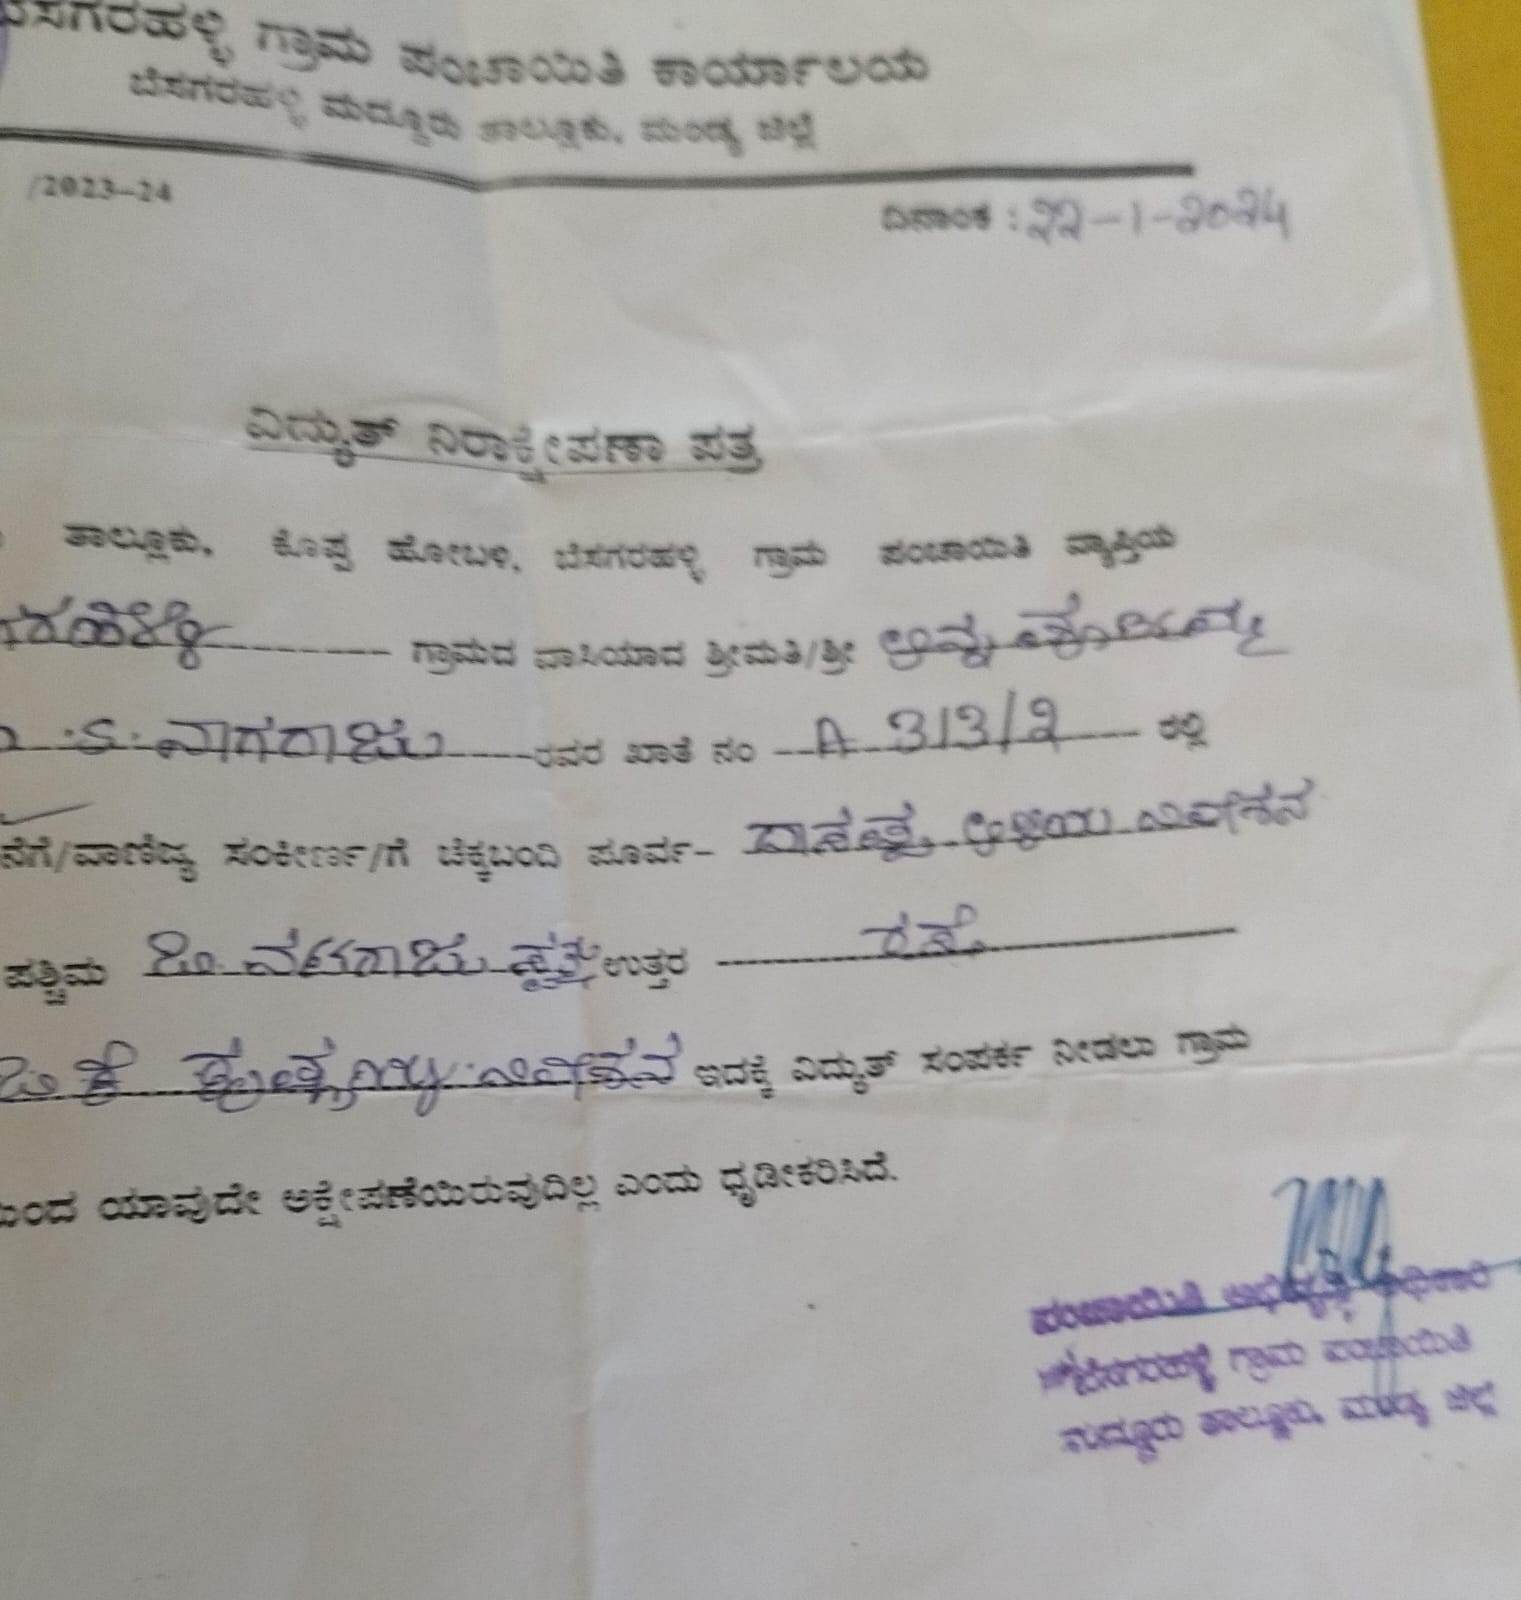 ಬೆಸಗರಹಳ್ಳಿ ಗ್ರಾಮ ಪಂಚಾಯಿತಿ ಕಾರ್ಯಾಲಯ
ಬೆಸಗರಹಳ್ಳಿ ಮದ್ದೂರು ತಾಲ್ಲೂಕು, ಮಂಡ್ಯ ಜಿಲ್ಲೆ
/2023-24
ದಿನಾಂಕ : 22-1-2024
ವಿದ್ಯುತ್ ನಿರಾಕ್ಷೇಪಣಾ ಪತ್ರ
ತಾಲ್ಲೂಕು, ಕೊಪ್ಪ ಹೋಬಳಿ, ಬೆಸಗರಹಳ್ಳಿ ಗ್ರಾಮ ಪಂಚಾಯಿತಿ ವ್ಯಾಪ್ತಿಯ
ಗರಹಳ್ಳಿ ಗ್ರಾಮದ ವಾಸಿಯಾದ ಶ್ರೀಮತಿ/ಶ್ರೀ
ನಾಗರಾಜು ರವರ ಖಾತೆ ನಂ A 313/2 ರಲ್ಲಿ
ನೆಗೆ/ವಾಣಿಜ್ಯ ಸಂಕೀರ್ಣ/ಗೆ ಚೆಕ್ಕಬಂದಿ ಪೂರ್ವ- ನಿವೇಶನ
ಪಶ್ಚಿಮ ಉತ್ತರ ರಸ್ತೆ
ನಿವೇಶನ ಇದಕ್ಕೆ ವಿದ್ಯುತ್ ಸಂಪರ್ಕ ನೀಡಲು ಗ್ರಾಮ
ಯಿಂದ ಯಾವುದೇ ಆಕ್ಷೇಪಣೆಯಿರುವುದಿಲ್ಲ ಎಂದು ಧೃಡೀಕರಿಸಿದೆ.
ಪಂಚಾಯಿತಿ ಅಭಿವೃದ್ಧಿ ಅಧಿಕಾರಿ
ಬೆಸಗರಹಳ್ಳಿ ಗ್ರಾಮ ಪಂಚಾಯಿತಿ
ಮದ್ದೂರು ತಾಲ್ಲೂಕು, ಮಂಡ್ಯ ಜಿಲ್ಲೆ